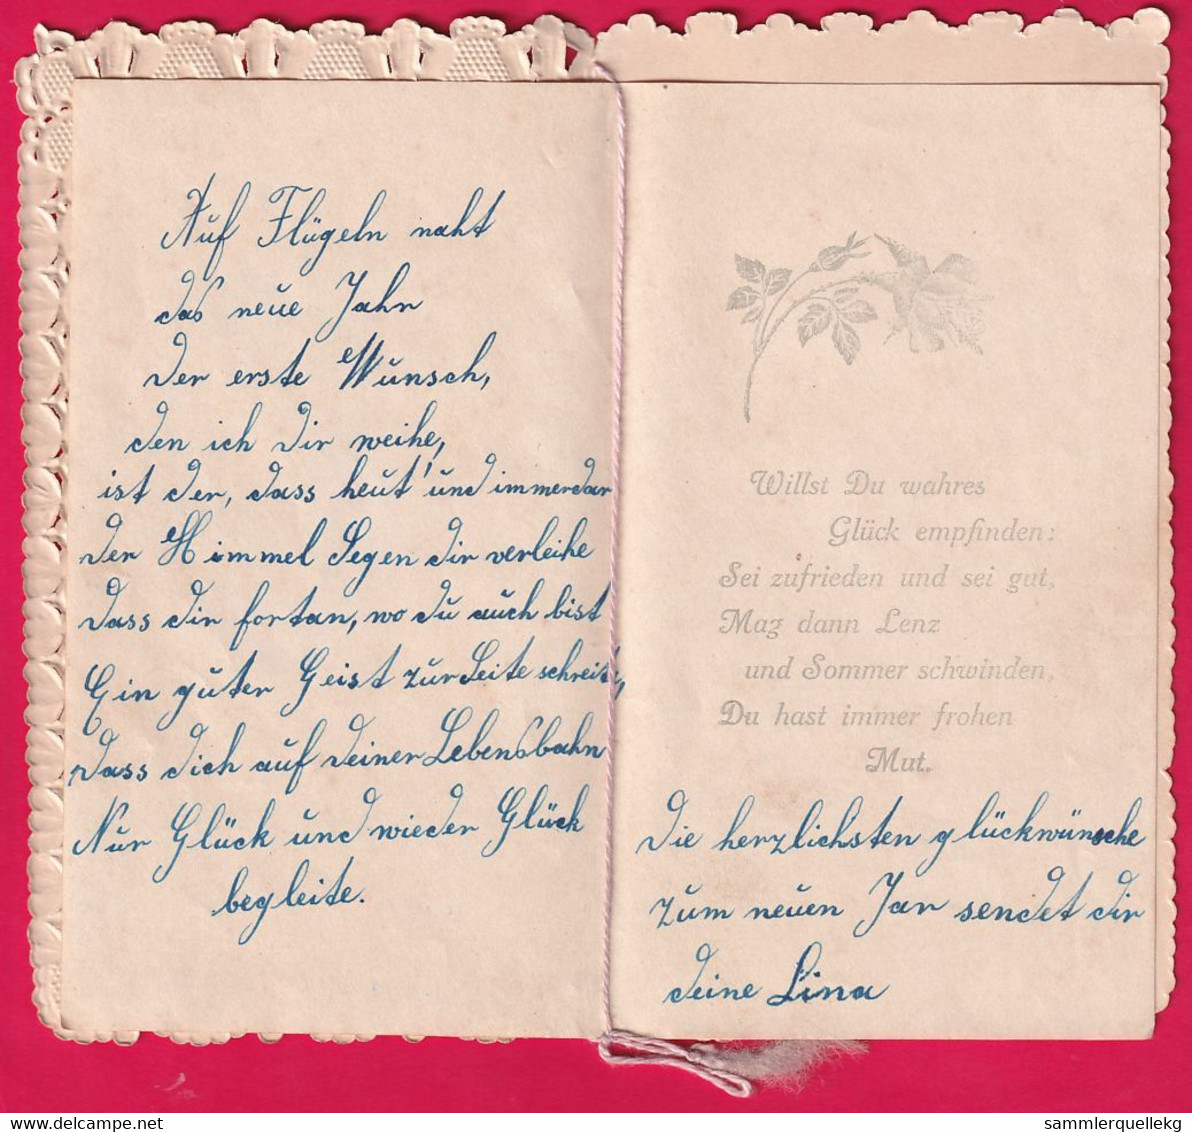 Auf Flügeln naht
das neue Jahr
Der erste Wunsch,
den ich dir weihe,
ist der, dass heut' und immerdar
der Himmel Segen dir verleihe
dass dir fortan, wo du auch bist
Ein guter Geist zur Seite schreit',
dass dich auf deiner Lebensbahn
Nur Glück und wieder Glück
begleite.
Willst Du wahres
Glück empfinden:
Sei zufrieden und sei gut,
Mag dann Lenz
und Sommer schwinden,
Du hast immer frohen
Mut.
Die herzlichsten glückwünsche
zum neuen Jar sendet dir
deine Lina
sammlerquellekg